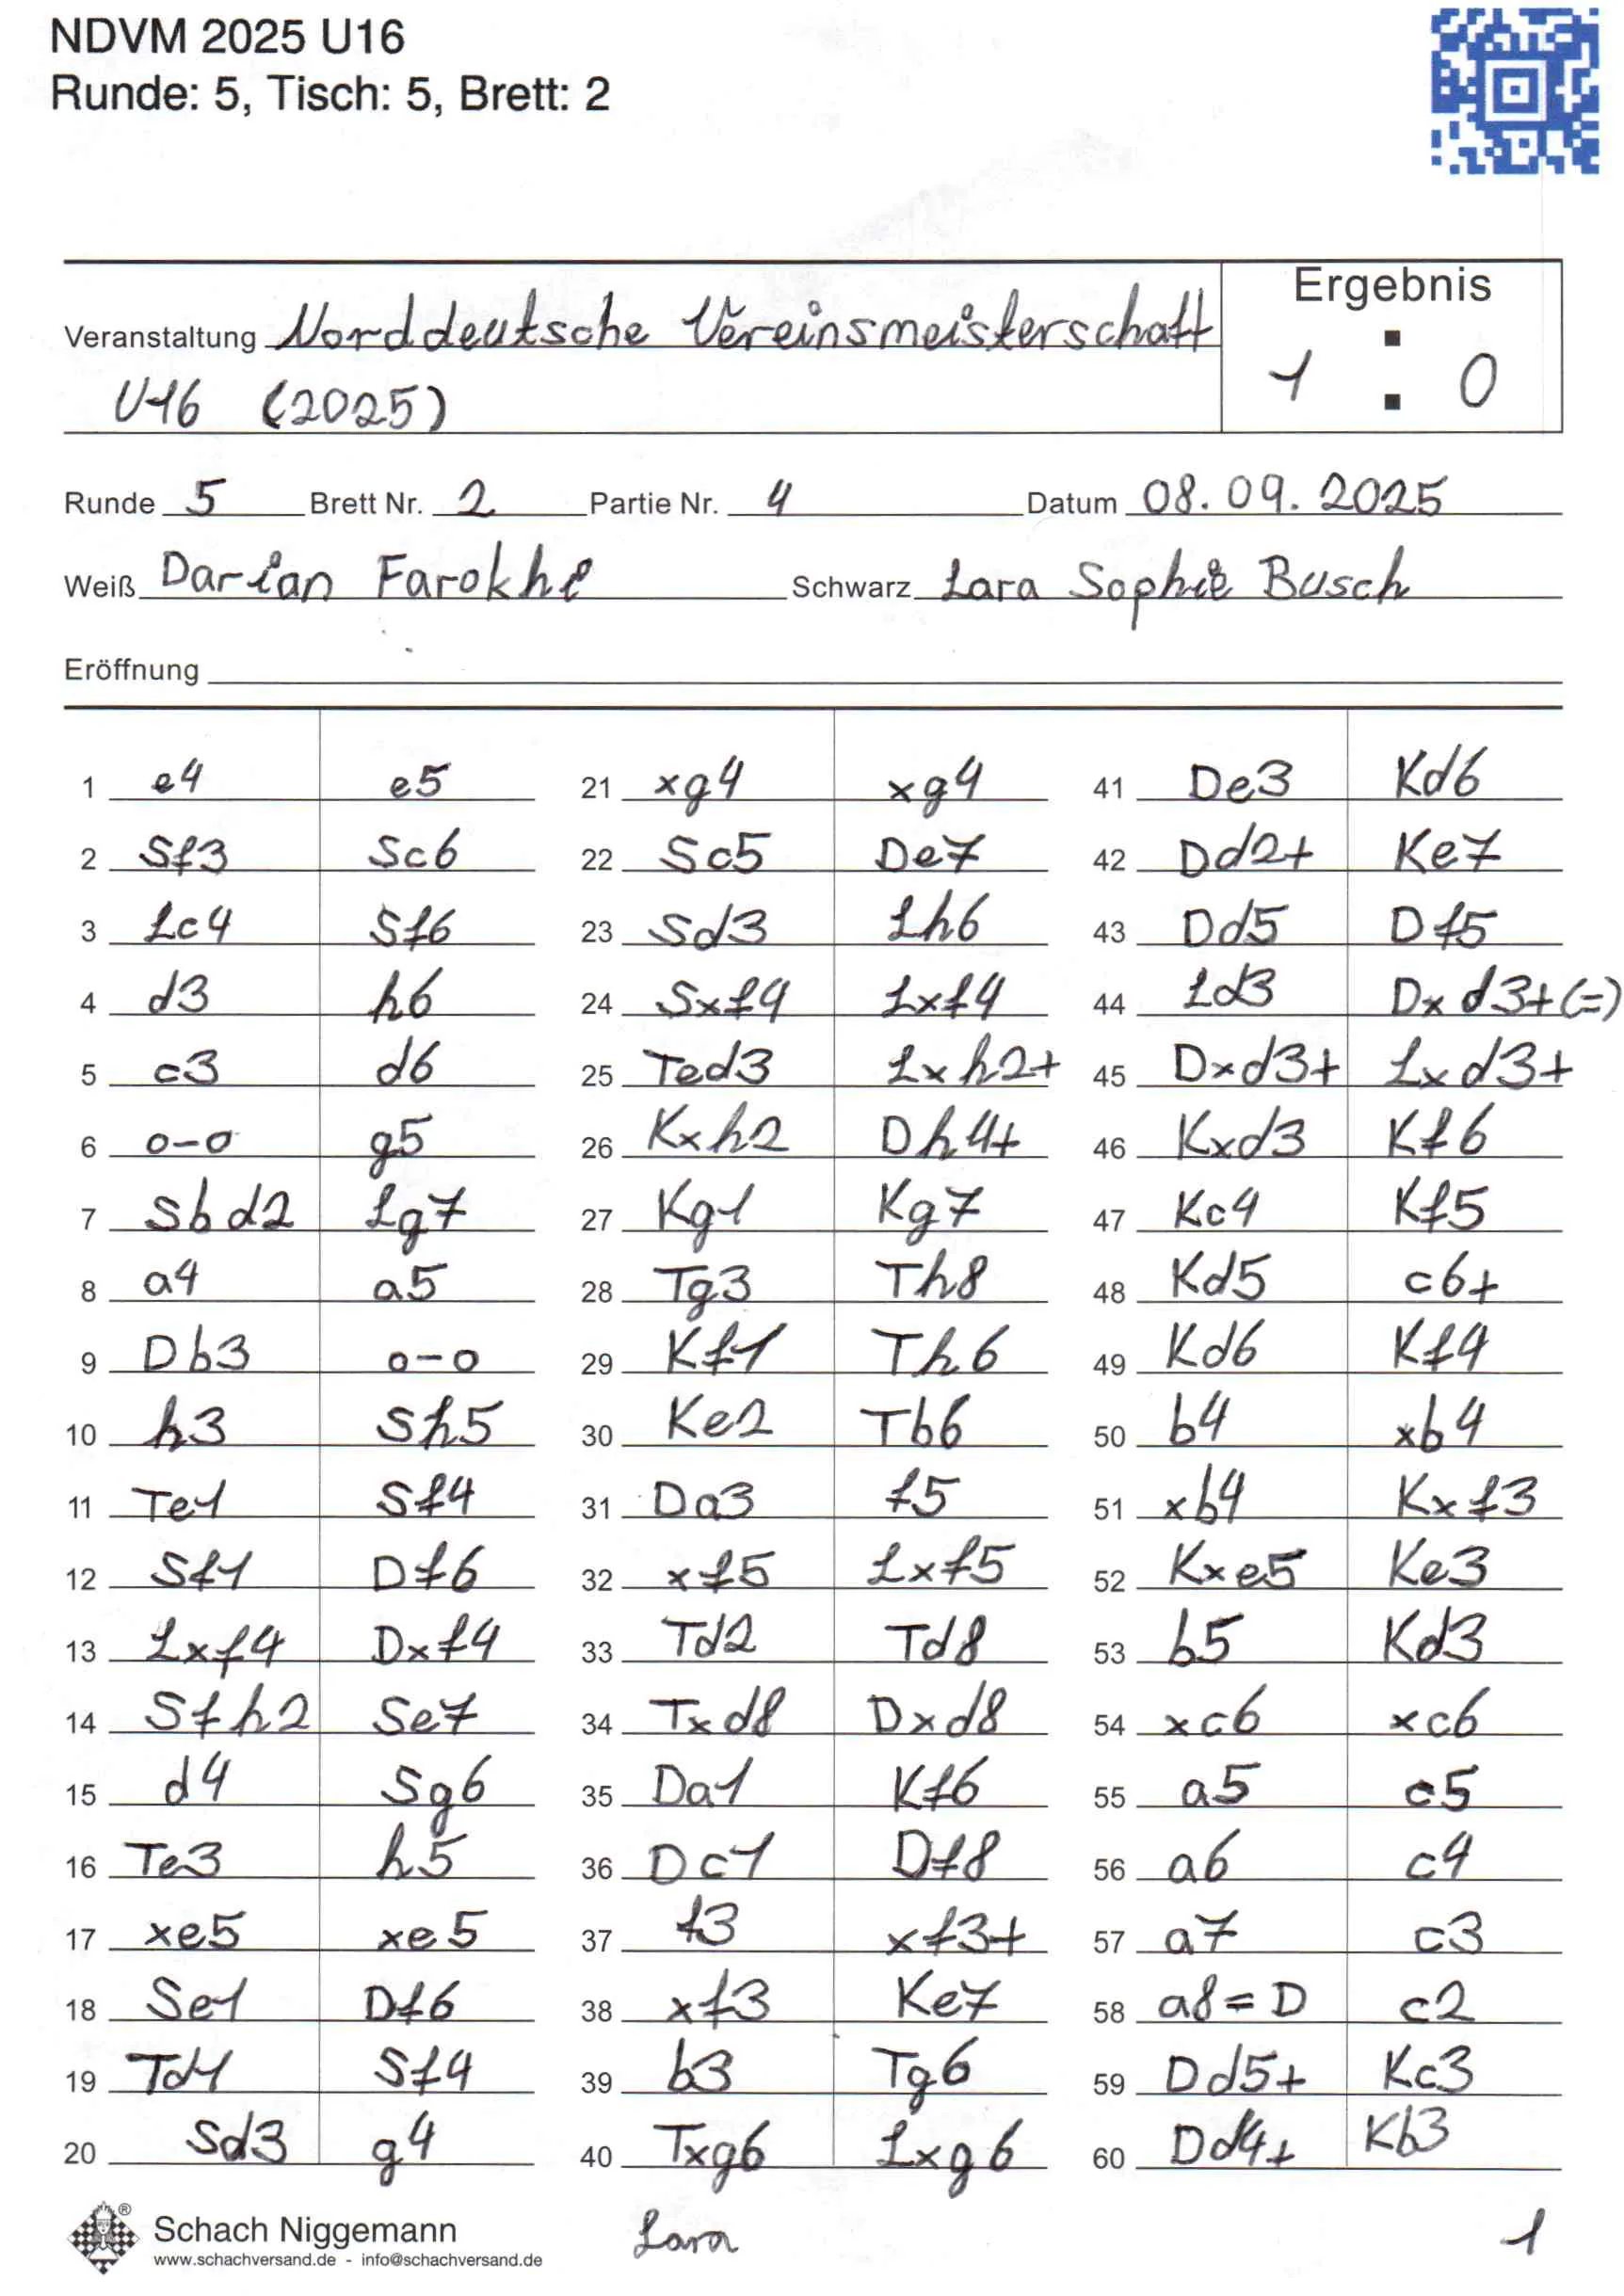 NDVM 2025 U16
Runde: 5, Tisch: 5, Brett: 2
Ergebnis
Veranstaltung Norddeutsche Vereinsmeisterschaft
U16 (2025)
1 : 0
Runde 5 Brett Nr. 2 Partie Nr. 4 Datum 08.09.2025
Weiß Darian Farokhi Schwarz Lara Sophie Busch
Eröffnung
1 e4 e5
2 Sf3 Sc6
3 Lc4 Sf6
4 d3 h6
5 c3 d6
6 o-o g5
7 Sbd2 Lg7
8 a4 a5
9 Db3 o-o
10 h3 Sh5
11 Te1 Sf4
12 Sf1 Df6
13 Lxf4 Dxf4
14 Sfh2 Se7
15 d4 Sg6
16 Te3 h5
17 xe5 xe5
18 Se1 Df6
19 Td1 Sf4
20 Sd3 g4
21 xg4 xg4
22 Sc5 De7
23 Sd3 Lh6
24 Sxf4 Lxf4
25 Ted3 Lxh2+
26 Kxh2 Dh4+
27 Kg1 Kg7
28 Tg3 Th8
29 Kf1 Th6
30 Ke2 Tb6
31 Da3 f5
32 xf5 Lxf5
33 Td2 Td8
34 Txd8 Dxd8
35 Da1 Kf6
36 Dc1 Df8
37 f3 xf3+
38 xf3 Ke7
39 b3 Tg6
40 Txg6 Lxg6
41 De3 Kd6
42 Dd2+ Ke7
43 Dd5 Df5
44 Ld3 Dxd3+(=)
45 Dxd3+ Lxd3+
46 Kxd3 Kf6
47 Kc4 Kf5
48 Kd5 c6+
49 Kd6 Kf4
50 b4 xb4
51 xb4 Kxf3
52 Kxe5 Ke3
53 b5 Kd3
54 xc6 xc6
55 a5 c5
56 a6 c4
57 a7 c3
58 a8=D c2
59 Dd5+ Kc3
60 Dd4+ Kb3
Schach Niggemann
www.schachversand.de - info@schachversand.de
Lara
1